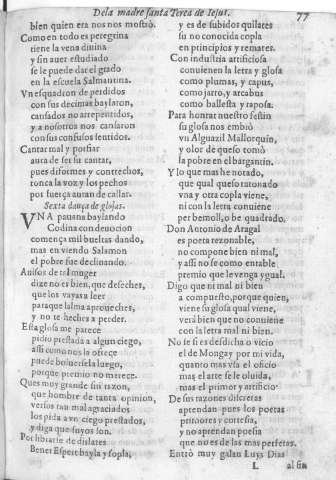 De la madre santa Teresa de Iesus. 77
bien quien era nos nos mostrò.
Como en todo es peregrina
tiene la vena diuina
y sin auer estudiado
se le puede dar el grado
en la escuela Salmantina.
Vn esquadron de perdidos
con sus decimas baylaron,
cansados no arrepentidos,
y a nosotros nos cansaron
con sus confusos sentidos.
Cantar mal y porfiar
aura de ser su cantar,
pues disformes y contrechos,
ronca la voz y los pechos
por fuerça auran de callar.
Sexta dança de glosas.
VNA pauana baylando
Codina con deuocion
comença mil bueltas dando,
mas en viendo Salamon
el pobre fue declinando.
Auisos de tal muger
dize no es bien, que deseches,
que los vayas a leer
para que la alma aproueches,
y no te heches a perder.
Esta glosa me parece
pidio prestada a algun ciego,
assi como nos la ofrece
puede boluersela luego,
porque premio no merece.
Ques muy grande sin razon,
que hombre de tanta opinion,
versos tan mal agraciados
los pida a vn ciego prestados,
y diga que suyos son.
Por librarse de dislates
Benet Espert bayla y sopla,
y es de subidos quilates
su no conocida copla
en principios y remates.
Con industria artificiosa
conuienen la letra y glosa
como plumas, y capus,
como jarro, y arcabus
como ballesta y raposa.
Para honrar nuestro festin
su glosa nos embiò
vn Alguazil Mallorquin,
y olor de queso tomò
la pobre en el bargantin.
Y lo que mas he notado,
que qual queso ratonado
vna y otra copla viene,
ni con la letra conuiene
per bemoll, o be quadrado.
Don Antonio de Aragal
es poeta rezonable,
no compone bien ni mal,
y assi no se como entable
premio que le venga ygual.
Digo que ni mal ni bien
a compuesto, porque quien,
viene su glosa qual viene,
verà bien que no conuiene
con la letra mal ni bien.
No se si es desdicha o vicio
el de Mongay por mi vida,
quanto mas via el oficio
mas el arte se le oluida,
mas el primor y artificio.
De sus razones discretas
aprendan pues los poetas
primores y cortesia,
y no aprendan poesia
que no es de las mas perfetas.
Entrò muy galan Luys Dias
L al fin